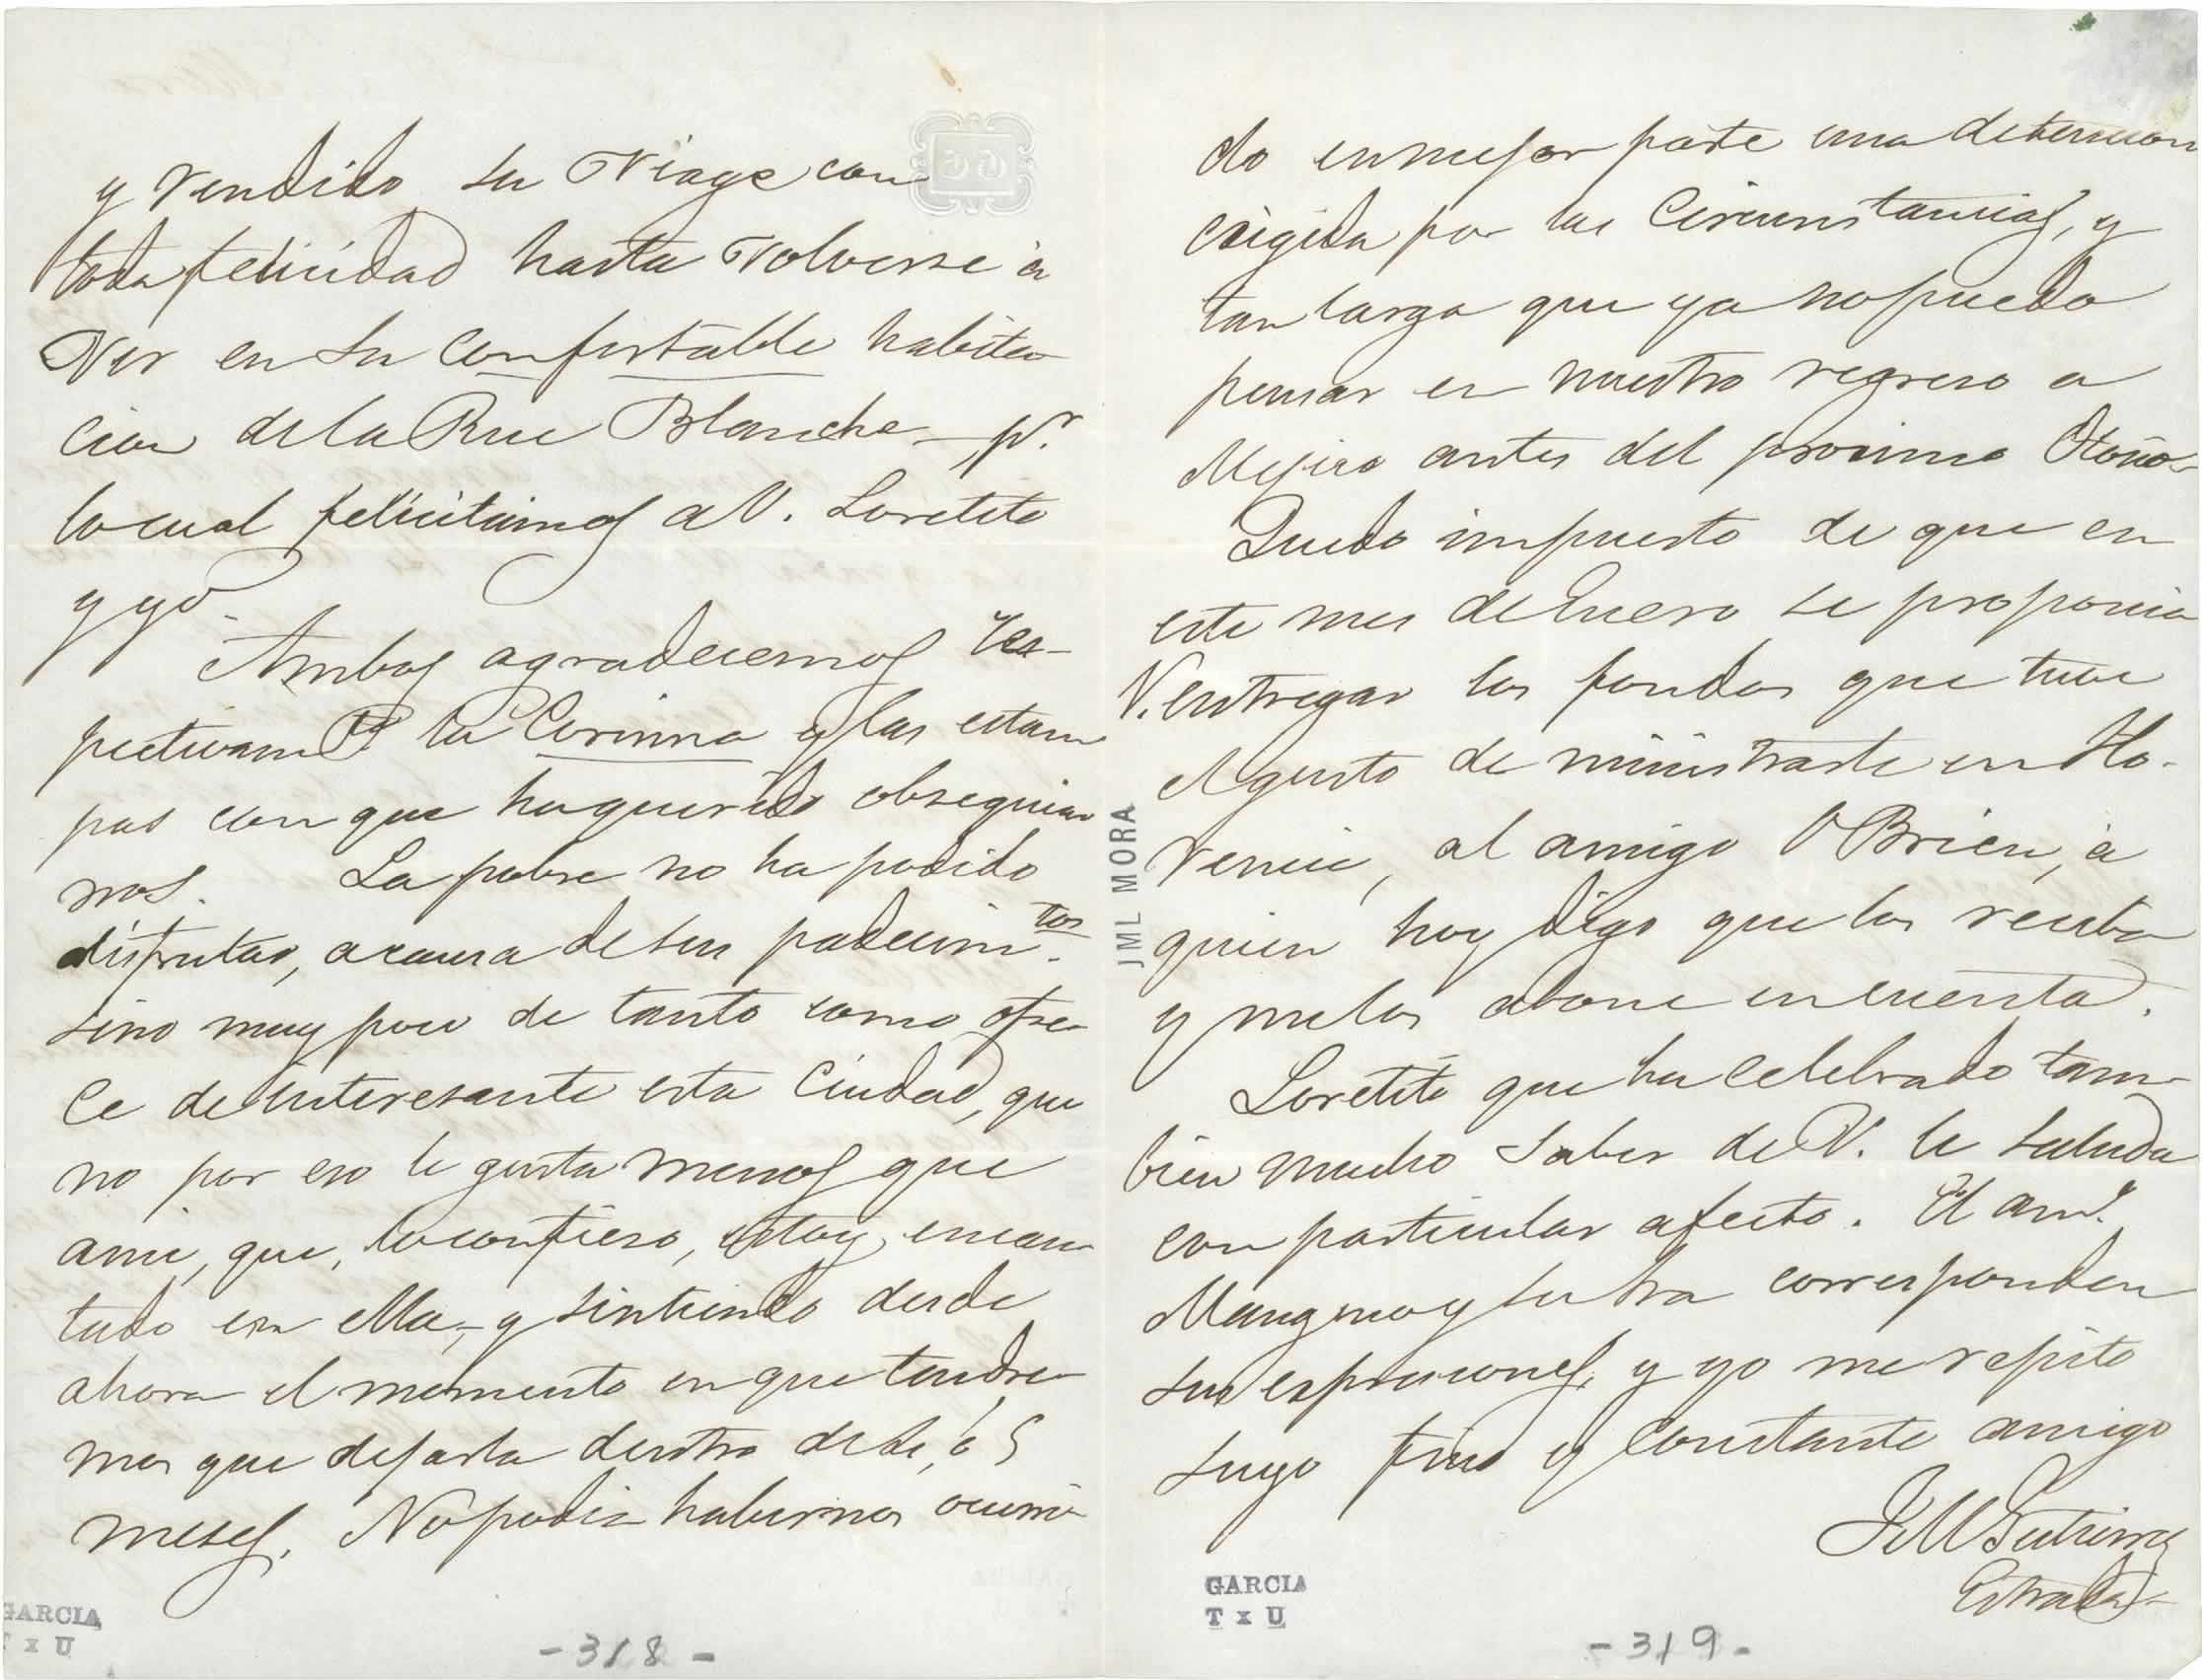 y rendido su Viage con
toda felicidad hasta volverse á
ver en su confortable habita
cion de la Rue Blanche_ pr.
lo cual felicitamos a V. Loretito
y yo.
Ambos agradecemos res-
pectivamte la Corinna y las estam
pas con que ha querido obsequiar
nos. La pobre no ha podido
disfrutar, a causa de sus padecimtos.
sino muy poco de tanto como ofre
ce de interesante esta Ciudad, que
no por eso le gusta menos que
a mi, que, lo confieso, estoy encan
tado en ella, y sintiendo desde
ahora el momento en que tendre
mos que dejarla dentro de 4, ó 5
meses. No podia habernos ocurri
GARCIA
T x U
-318-
do en mejor parte una detencion
exigida por las Circunstancias, y
tan larga que ya no puedo
pensar en nuestro regreso a
Mejico antes del procsimo Otoño-
Quedo impuesto de que en
este mes de Enero se proponia
V. entregar los fondos que tuve
el gusto de ministrarle en Flo-
rencia, al amigo O'Brien, á
quien hoy digo que los reciba
y me los abone en cuenta.
Loretito que ha celebrado tam-
bien mucho saber de V. le saluda
con particular afecto. El amo.
y su Sra corresponden
sus espresiones, y yo me repito
suyo fino y constante amigo
J M Gutierrez
Estrada
JML MORA
GARCIA
T x U
-319-